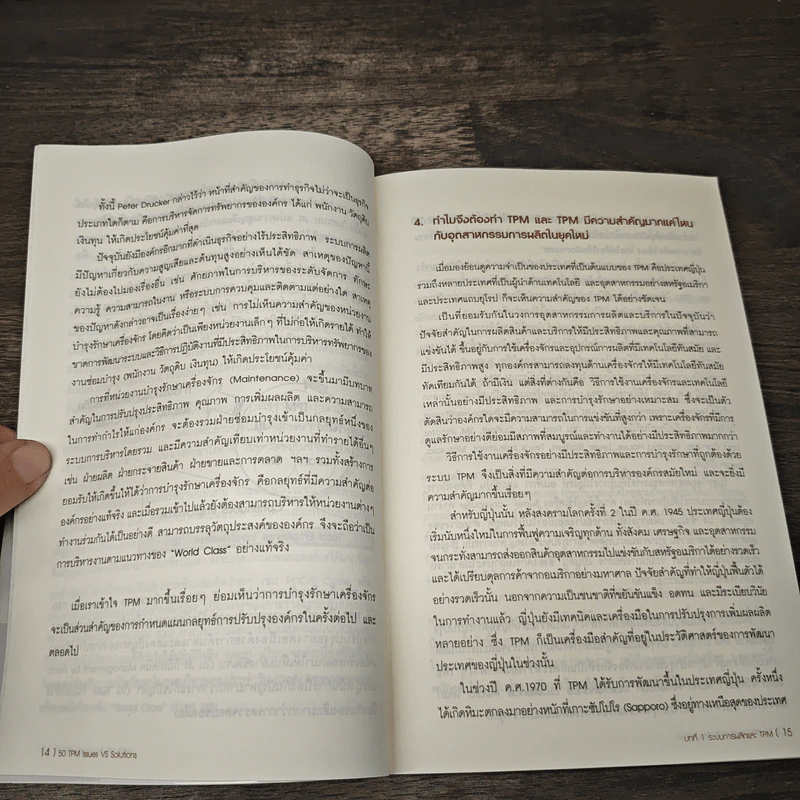 ทั้งนี้ Peter Drucker กล่าวไว้ว่า หน้าที่สำคัญของการทำธุรกิจไม่ว่าจะเป็นธุรกิจ
ประเภทใดก็ตาม คือการบริหารจัดการทรัพยากรขององค์กร ได้แก่ พนักงาน วัตถุดิบ
เงินทุน ให้เกิดประโยชน์คุ้มค่าที่สุด
ปัจจุบันยังมีองค์กรอีกมากที่ดำเนินธุรกิจอย่างไร้ประสิทธิภาพ ระบบการผลิต
มีปัญหาเกี่ยวกับความสูญเสียและต้นทุนสูงอย่างเห็นได้ชัด สาเหตุของปัญหานี้
ยังไม่ต้องไปมองเรื่องอื่น เช่น ศักยภาพในการบริหารของระดับจัดการ ทักษะ
ความรู้ ความสามารถในงาน หรือระบบการควบคุมและติดตามแต่อย่างใด สาเหตุ
ของปัญหาดังกล่าวอาจเป็นเรื่องง่ายๆ เช่น การไม่เห็นความสำคัญของหน่วยงาน
บำรุงรักษาเครื่องจักร โดยคิดว่าเป็นเพียงหน่วยงานเล็กๆ ที่ไม่ก่อให้เกิดรายได้ ทำให้
ขาดการพัฒนาระบบและวิธีการปฏิบัติงานที่มีประสิทธิภาพในการบริหารทรัพยากรของ
งานซ่อมบำรุง (พนักงาน วัตถุดิบ เงินทุน) ให้เกิดประโยชน์คุ้มค่า
การที่หน่วยงานบำรุงรักษาเครื่องจักร (Maintenance) จะขึ้นมามีบทบาท
สำคัญในการปรับปรุงประสิทธิภาพ คุณภาพ การเพิ่มผลผลิต และความสามารถ
ในการทำกำไรให้แก่องค์กร จะต้องรวมฝ่ายซ่อมบำรุงเข้าเป็นกลยุทธ์หนึ่งของ
ระบบการบริหารโดยรวม และมีความสำคัญเทียบเท่าหน่วยงานที่ทำรายได้อื่นๆ
เช่น ฝ่ายผลิต ฝ่ายกระจายสินค้า ฝ่ายขายและการตลาด ฯลฯ รวมทั้งสร้างการ
ยอมรับให้เกิดขึ้นให้ได้ว่าการบำรุงรักษาเครื่องจักร คือกลยุทธ์ที่มีความสำคัญต่อ
องค์กรอย่างแท้จริง และเมื่อรวมเข้าไปแล้วยังต้องสามารถบริหารให้หน่วยงานต่างๆ
ทำงานร่วมกันได้เป็นอย่างดี สามารถบรรลุวัตถุประสงค์ขององค์กร จึงจะถือว่าเป็น
การบริหารงานตามแนวทางของ "World Class" อย่างแท้จริง
เมื่อเราเข้าใจ TPM มากขึ้นเรื่อยๆ ย่อมเห็นว่าการบำรุงรักษาเครื่องจักร
จะเป็นส่วนสำคัญของการกำหนดแผนกลยุทธ์การปรับปรุงองค์กรในครั้งต่อไป และ
ตลอดไป
14 | 50 TPM Issues VS Solutions
4. ทำไมจึงต้องทำ TPM และ TPM มีความสำคัญมากแค่ไหน
กับอุตสาหกรรมการผลิตในยุคใหม่
เมื่อมองย้อนดูความจำเป็นของประเทศที่เป็นต้นแบบของ TPM คือประเทศญี่ปุ่น
รวมถึงหลายประเทศที่เป็นผู้นำด้านเทคโนโลยี และอุตสาหกรรมอย่างสหรัฐอเมริกา
และประเทศแถบยุโรป ก็จะเห็นความสำคัญของ TPM ได้อย่างชัดเจน
เป็นที่ยอมรับกันในวงการอุตสาหกรรมการผลิตและบริการในปัจจุบันว่า
ปัจจัยสำคัญในการผลิตสินค้าและบริการให้มีประสิทธิภาพและคุณภาพที่สามารถ
แข่งขันได้ ขึ้นอยู่กับการใช้เครื่องจักรและอุปกรณ์การผลิตที่มีเทคโนโลยีทันสมัย และ
มีประสิทธิภาพสูง ทุกองค์กรสามารถลงทุนด้านเครื่องจักรให้มีเทคโนโลยีทันสมัย
ทัดเทียมกันได้ ถ้ามีเงิน แต่สิ่งที่ต่างกันคือ วิธีการใช้งานเครื่องจักรและเทคโนโลยี
เหล่านั้นอย่างมีประสิทธิภาพ และการบำรุงรักษาอย่างเหมาะสม ซึ่งจะเป็นตัว
ตัดสินว่าองค์กรใดจะมีความสามารถในการแข่งขันที่สูงกว่า เพราะเครื่องจักรที่มีการ
ดูแลรักษาอย่างดีย่อมมีสภาพที่สมบูรณ์และทำงานได้อย่างมีประสิทธิภาพมากกว่า
วิธีการใช้งานเครื่องจักรอย่างมีประสิทธิภาพและการบำรุงรักษาที่ถูกต้องด้วย
ระบบ TPM จึงเป็นสิ่งที่มีความสำคัญต่อการบริหารองค์กรสมัยใหม่ และจะยิ่งมี
ความสำคัญมากขึ้นเรื่อยๆ
สำหรับญี่ปุ่นนั้น หลังสงครามโลกครั้งที่ 2 ในปี ค.ศ. 1945 ประเทศญี่ปุ่นต้อง
เริ่มนับหนึ่งใหม่ในการฟื้นฟูความเจริญทุกด้าน ทั้งสังคม เศรษฐกิจ และอุตสาหกรรม
จนกระทั่งสามารถส่งออกสินค้าอุตสาหกรรมไปแข่งขันกับสหรัฐอเมริกาได้อย่างรวดเร็ว
และได้เปรียบดุลการค้าจากอเมริกาอย่างมหาศาล ปัจจัยสำคัญที่ทำให้ญี่ปุ่นฟื้นตัวได้
อย่างรวดเร็วนั้น นอกจากความเป็นชนชาติที่ขยันขันแข็ง อดทน และมีระเบียบวินัย
ในการทำงานแล้ว ญี่ปุ่นยังมีเทคนิคและเครื่องมือในการปรับปรุงการเพิ่มผลผลิต
หลายอย่าง ซึ่ง TPM ก็เป็นเครื่องมือสำคัญที่อยู่ในประวัติศาสตร์ของการพัฒนา
ประเทศของญี่ปุ่นในช่วงนั้น
ในช่วงปี ค.ศ.1970 ที่ TPM ได้รับการพัฒนาขึ้นในประเทศญี่ปุ่น ครั้งหนึ่ง
ได้เกิดหิมะตกลงมาอย่างหนักที่เกาะซัปโปโร (Sapporo) ซึ่งอยู่ทางเหนือสุดของประเทศ
บทที่ 1 ระบบการผลิตและ TPM | 15